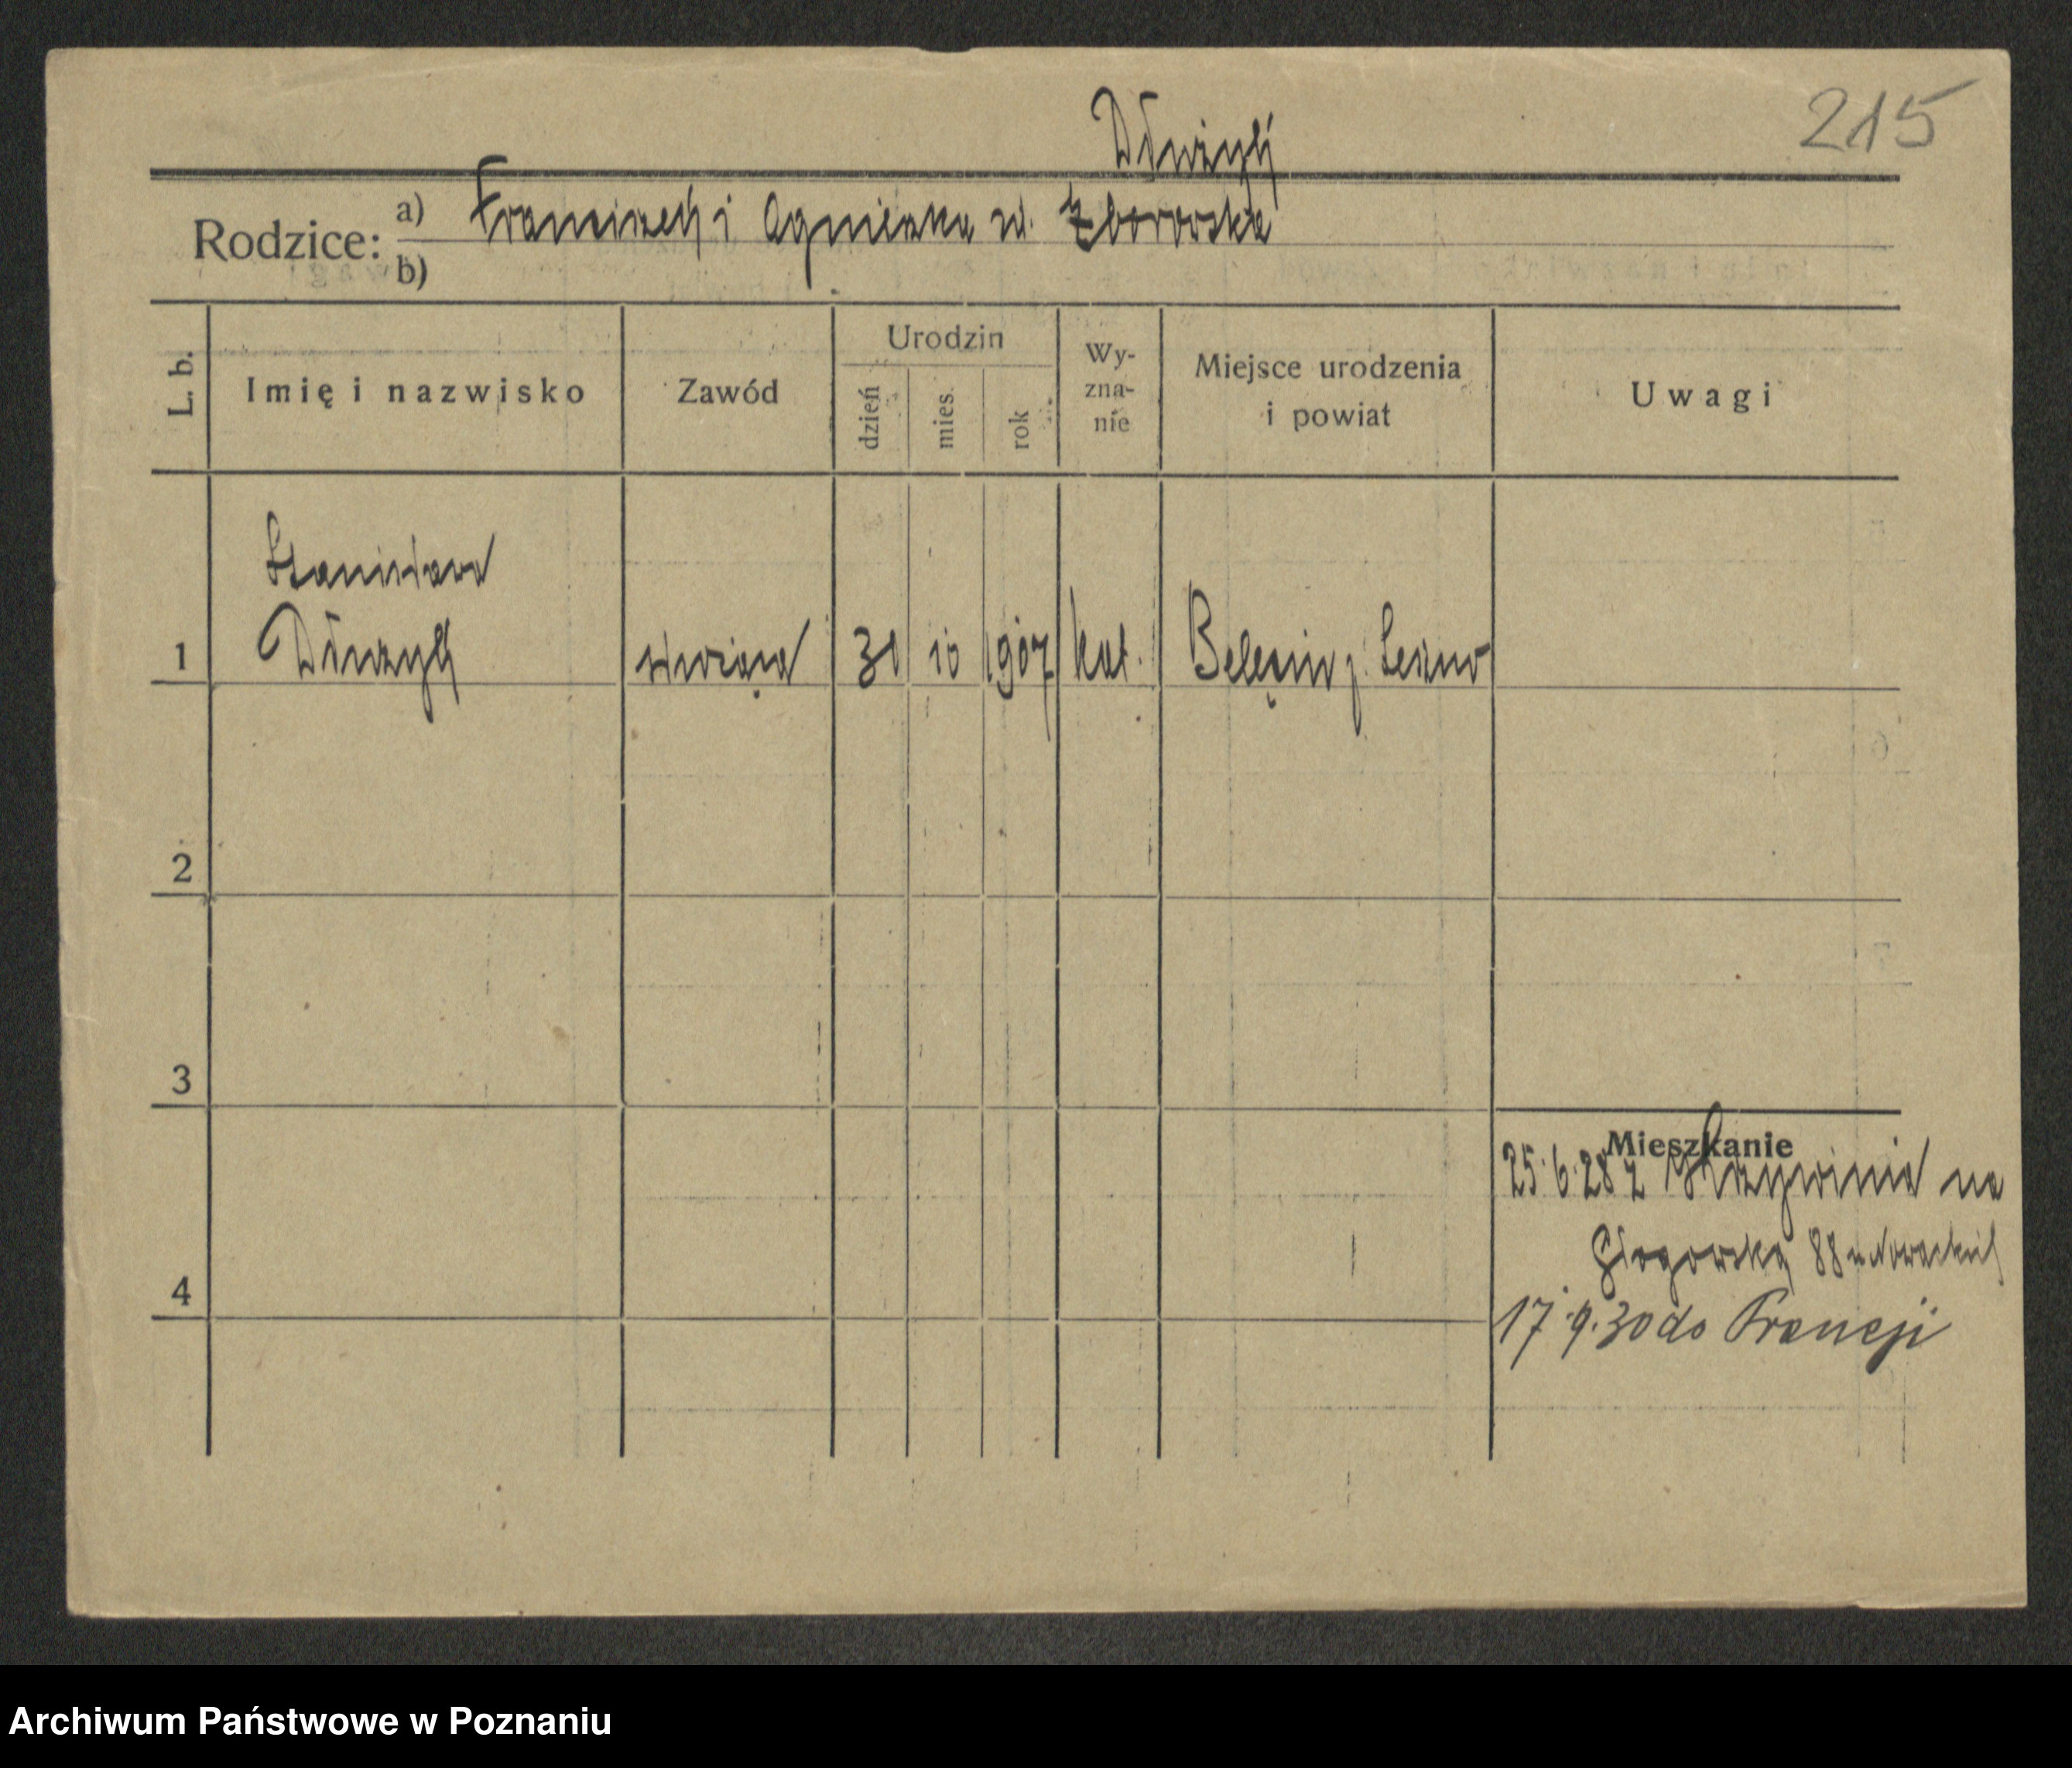 215
Dłużyk
Rodzice: a) Franciszek i Agnieszka ur. Zborowska
b)
L. b. Imię i nazwisko Zawód Urodzin dzień mies. rok Wy-zna-nie Miejsce urodzenia i powiat Uwagi
Stanisław
1 Dłużyk służąca 30 10 1907 kat. Belęcin p. Leszno
2
3
Mieszkanie
25.6.28 z Krzywinia na
Głogowską 88 u Nowackich
4
17.9.30 do Francji
Archiwum Państwowe w Poznaniu